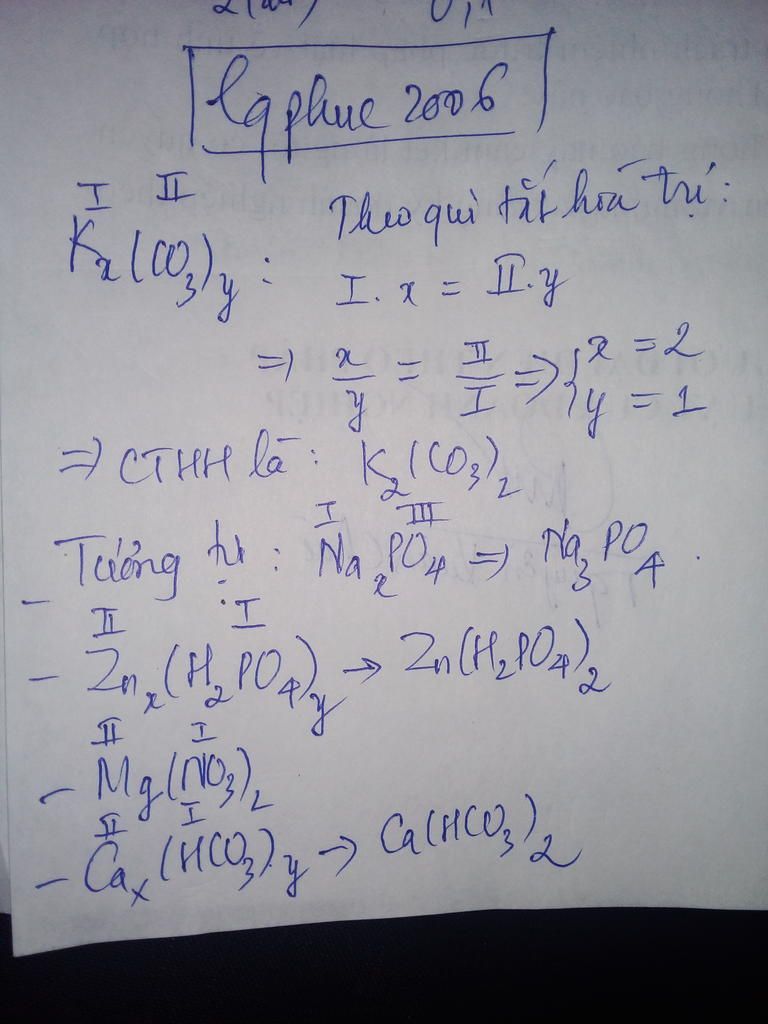 lqphuc 2006
I II
Kx(CO3)y : Theo qui tắt hoá trị:
I. x = II. y
=> x/y = II/I => { x = 2
y = 1
=> CTHH là : K2(CO3)2
I III
- Tương tự : NaxPO4 => Na3PO4.
II I
- Znx(H2PO4)y → Zn(H2PO4)2
II I
- Mg(NO3)2
II I
- Cax(HCO3)y → Ca(HCO3)2